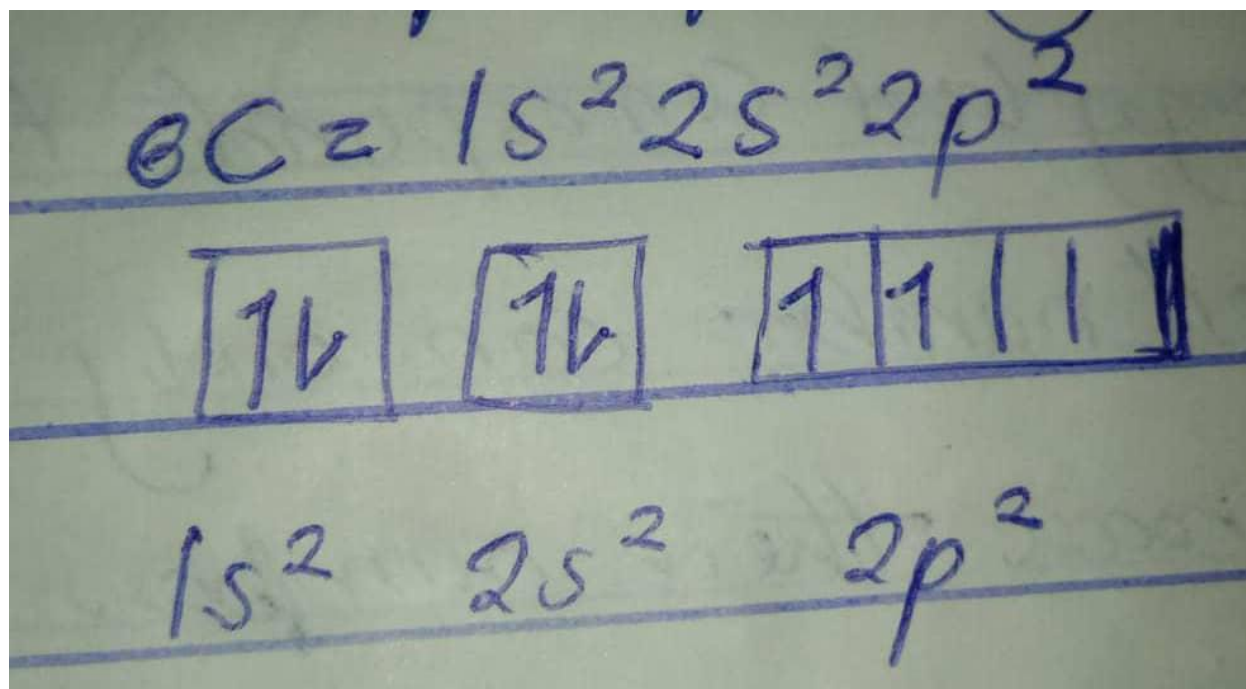 6C = 1s² 2s² 2p²
1↓ 1↓ 1 1 |
1s² 2s² 2p²